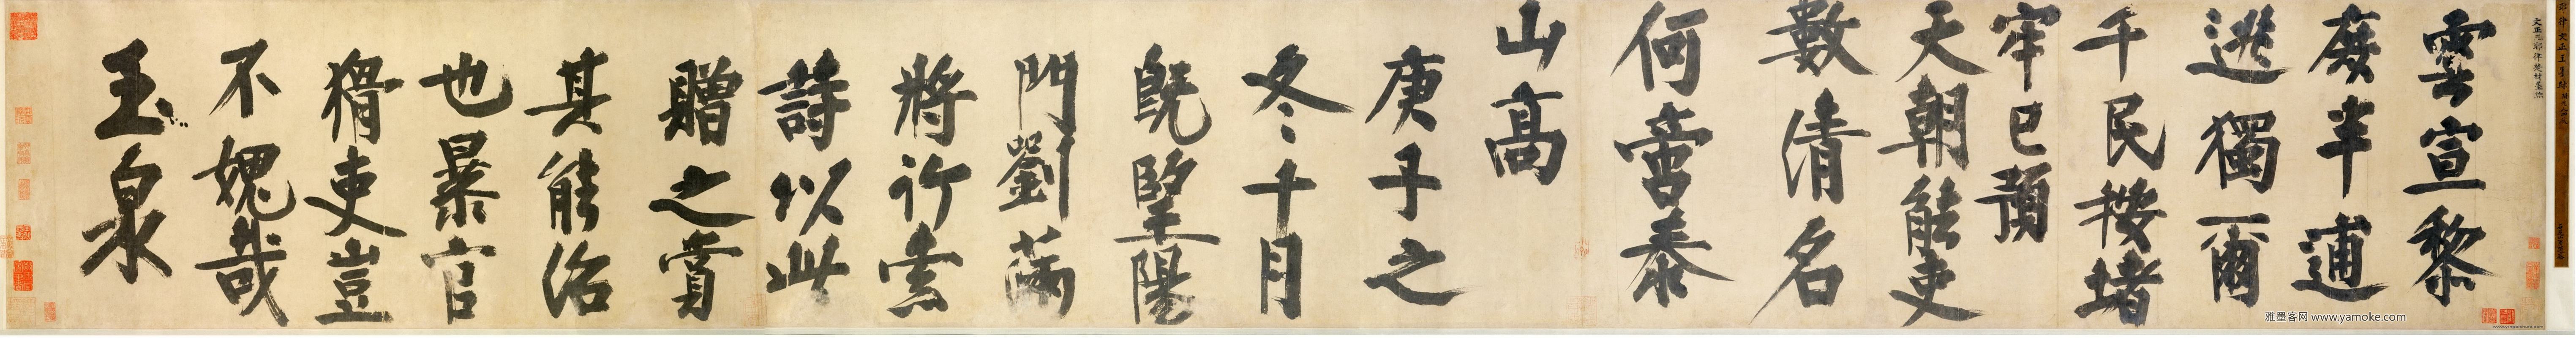 雲宣黎
庶半逋
逃獨爾
千民按堵
牢已預
天朝能吏
數清名
何啻泰
山高
庚子之
冬十月
既望陽
門劉滿
將行索
詩以此
贈之賞
其能治
也暴官
猾吏豈
不愧哉
玉泉
雅墨客网 www.yamoke.com